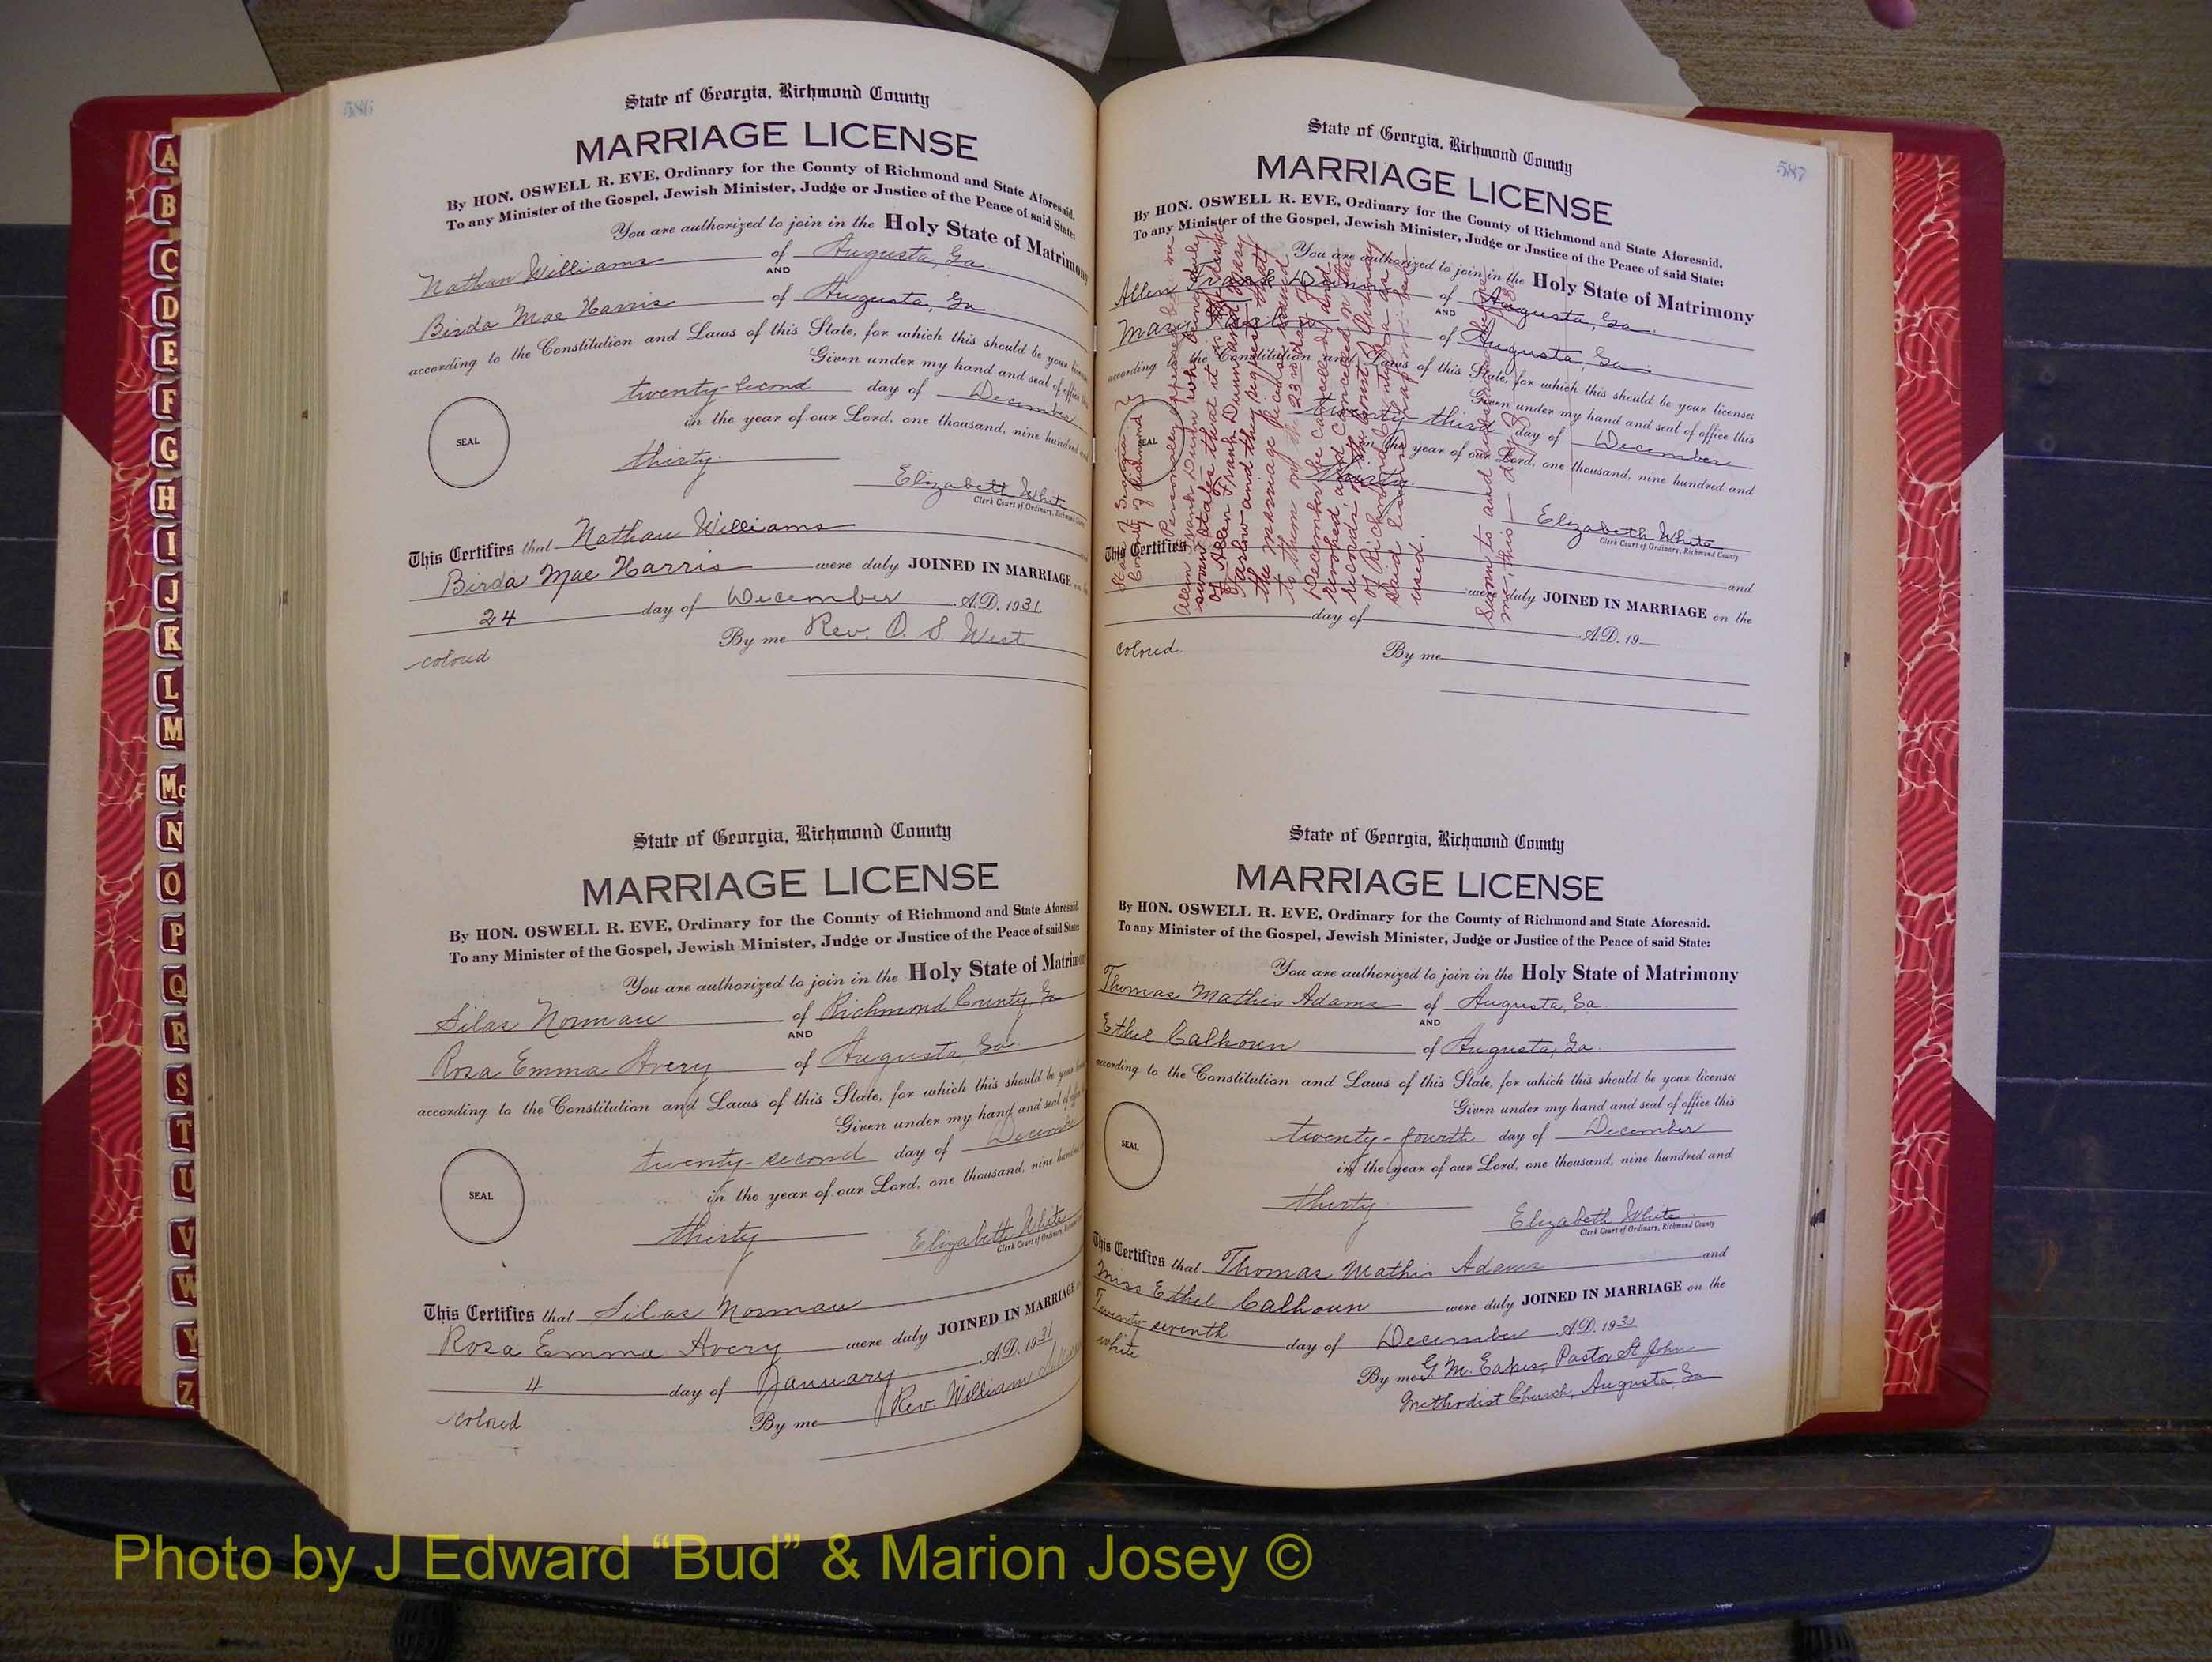 586
State of Georgia, Richmond County
MARRIAGE LICENSE
By HON. OSWELL R. EVE, Ordinary for the County of Richmond and State Aforesaid.
To any Minister of the Gospel, Jewish Minister, Judge or Justice of the Peace of said State:
You are authorized to join in the Holy State of Matrimony
Nathan Williams of Augusta, Ga.
AND
Birda Mae Harris of Augusta, Ga.
according to the Constitution and Laws of this State, for which this should be your license
Given under my hand and seal of office this
twenty-second day of December
in the year of our Lord, one thousand, nine hundred and
SEAL
thirty.
Elizabeth White
Clerk Court of Ordinary, Richmond County
This Certifies that Nathan Williams
Birda Mae Harris were duly JOINED IN MARRIAGE on
24 day of December A.D. 1931
By me Rev. O. S West
colored
State of Georgia, Richmond County
MARRIAGE LICENSE
By HON. OSWELL R. EVE, Ordinary for the County of Richmond and State Aforesaid.
To any Minister of the Gospel, Jewish Minister, Judge or Justice of the Peace of said State:
You are authorized to join in the Holy State of Matrimony
Silas Norman of Richmond County, Ga
AND
Rosa Emma Avery of Augusta, Ga.
according to the Constitution and Laws of this State, for which this should be your license
Given under my hand and seal of office
twenty-second day of December
in the year of our Lord, one thousand, nine hundred
SEAL
thirty
Elizabeth White
Clerk Court of Ordinary, Richmond
This Certifies that Silas Norman
Rosa Emma Avery were duly JOINED IN MARRIAGE
4 day of January A.D. 1931
By me Rev. William
colored
587
State of Georgia, Richmond County
MARRIAGE LICENSE
By HON. OSWELL R. EVE, Ordinary for the County of Richmond and State Aforesaid.
To any Minister of the Gospel, Jewish Minister, Judge or Justice of the Peace of said State:
You are authorized to join in the Holy State of Matrimony
Allen Frank Dunn of Augusta, Ga.
AND
Mary of Augusta, Ga.
according to the Constitution and Laws of this State, for which this should be your licenses
Given under my hand and seal of office this
twenty-third day of December
in the year of our Lord, one thousand, nine hundred and
SEAL
thirty.
Elizabeth White
Clerk Court of Ordinary, Richmond County
This Certifies
and
were duly JOINED IN MARRIAGE on the
day of A.D. 19
colored.
By me
State of Georgia
County of Richmond
Personally appeared before me
Allen Frank Dunn who being duly
sworn states that it is the desire
of Allen Frank Dunn and Mary
and they request that
the marriage license issued
to them on the 23rd day of
December be cancelled and
revoked and cancelled on the
records of the Court of Ordinary
of Richmond County, Ga. as
said license has not been
used.
Sworn to and subscribed before
me, this day of
State of Georgia, Richmond County
MARRIAGE LICENSE
By HON. OSWELL R. EVE, Ordinary for the County of Richmond and State Aforesaid.
To any Minister of the Gospel, Jewish Minister, Judge or Justice of the Peace of said State:
You are authorized to join in the Holy State of Matrimony
Thomas Mathis Adams of Augusta, Ga.
AND
Ethel Calhoun of Augusta, Ga.
according to the Constitution and Laws of this State, for which this should be your licenses
Given under my hand and seal of office this
twenty-fourth day of December
in the year of our Lord, one thousand, nine hundred and
SEAL
thirty
Elizabeth White
Clerk Court of Ordinary, Richmond County
This Certifies that Thomas Mathis Adams and
Miss Ethel Calhoun were duly JOINED IN MARRIAGE on the
Twenty-seventh day of December A.D. 193
white
By me G. M. Eakes, Pastor St John
Methodist Church, Augusta, Ga
A
B
C
D
E
F
G
H
I
J
K
L
M
Mc
N
O
P
Q
R
S
T
U
V
W
Y
Z
Photo by J Edward “Bud” & Marion Josey ©